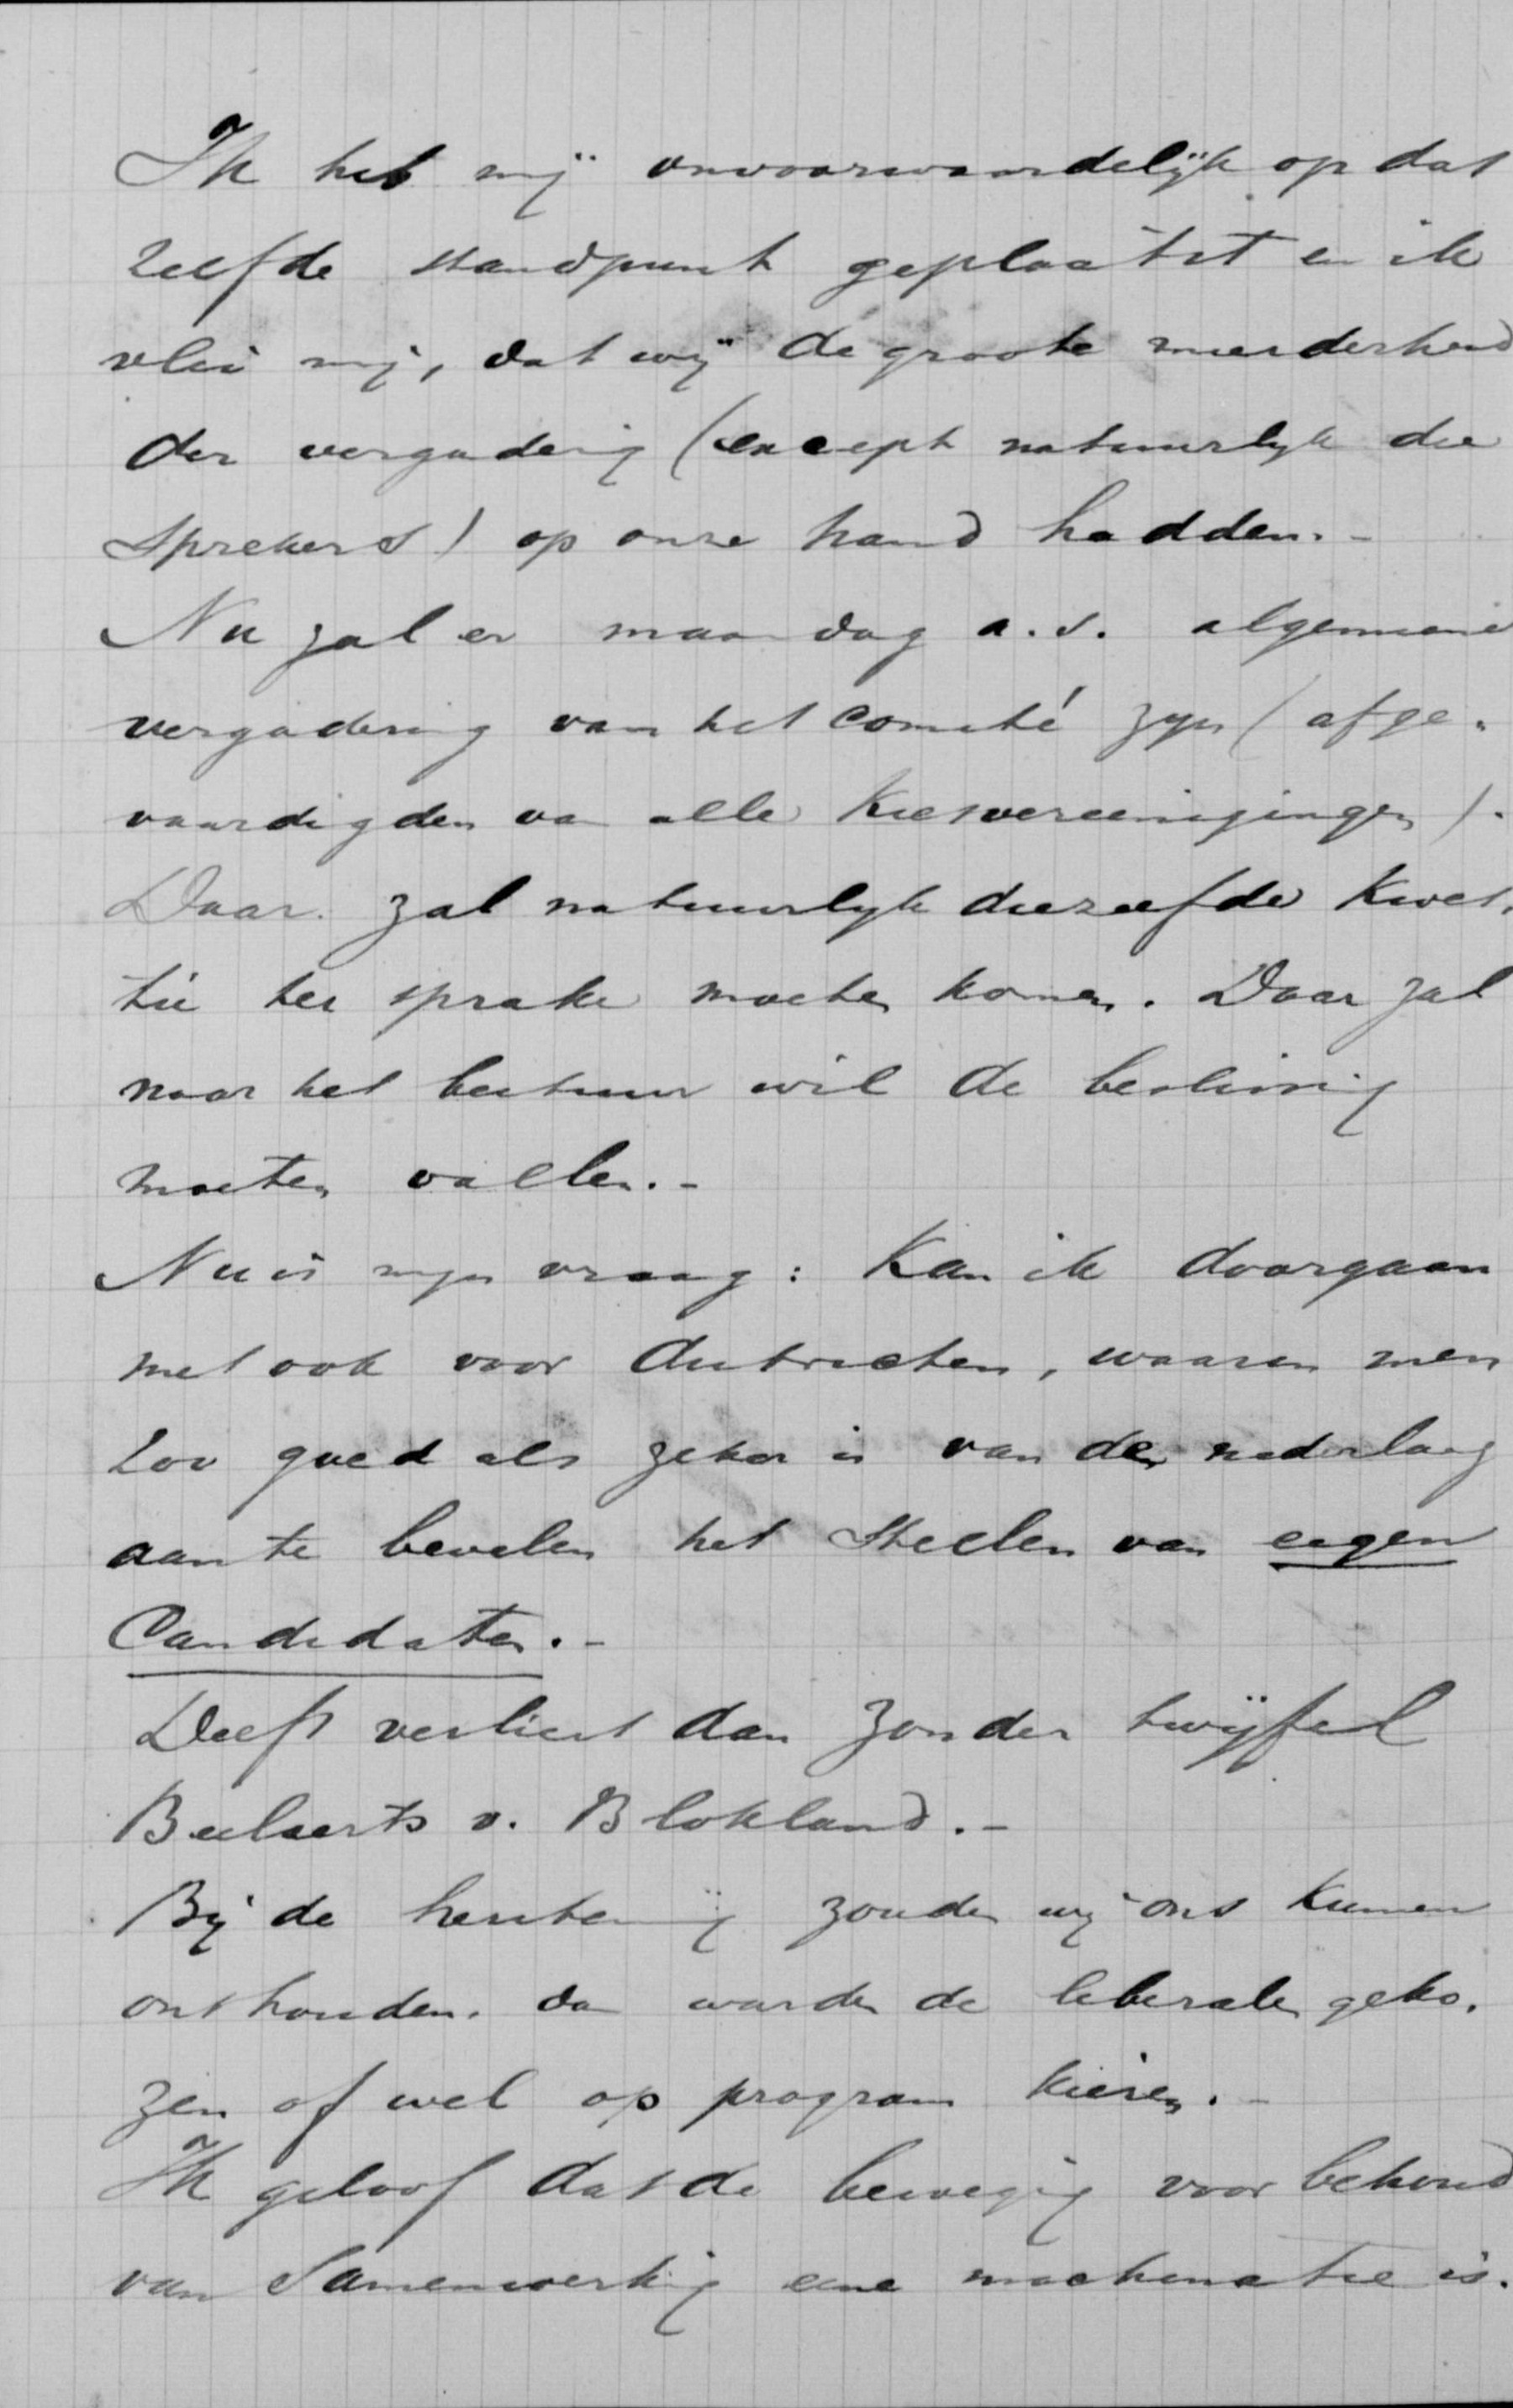 Ik heb mij onvoorwaardelijk op dat
zelfde standpunt geplaatst en ik
vlei mij, dat wij de groote meerderheid
der vergadering (except natuurlyk die
sprekers) op onze hand hadden.-
Nu zal er maandag a.s. algemeene
vergadering van het comité zyn (afge-
vaardigden van alle Kiesvereenigingen).
Daar zal natuurlyk diezelfde kwes-
tie ter sprake moeten komen. Daar zal
naar het bestuur wil de beslissing
moeten vallen.-
Nu is myn vraag: Kan ik doorgaan
met ook voor districten, waarin men
zoo goed als zeker is van de nederlaag
aan te bevelen het stellen van eigen
Candidaten.-
Delft verliest dan zonder twijfel
Beelaerts v. Blokland.-
Bij de herstemming zouden wij ons kunnen
onthouden. dan worden de liberalen geko-
zen of wel op program kiezen.-
Ik geloof dat de beweging voor behoud
van Samenwerking eene machinatie is.